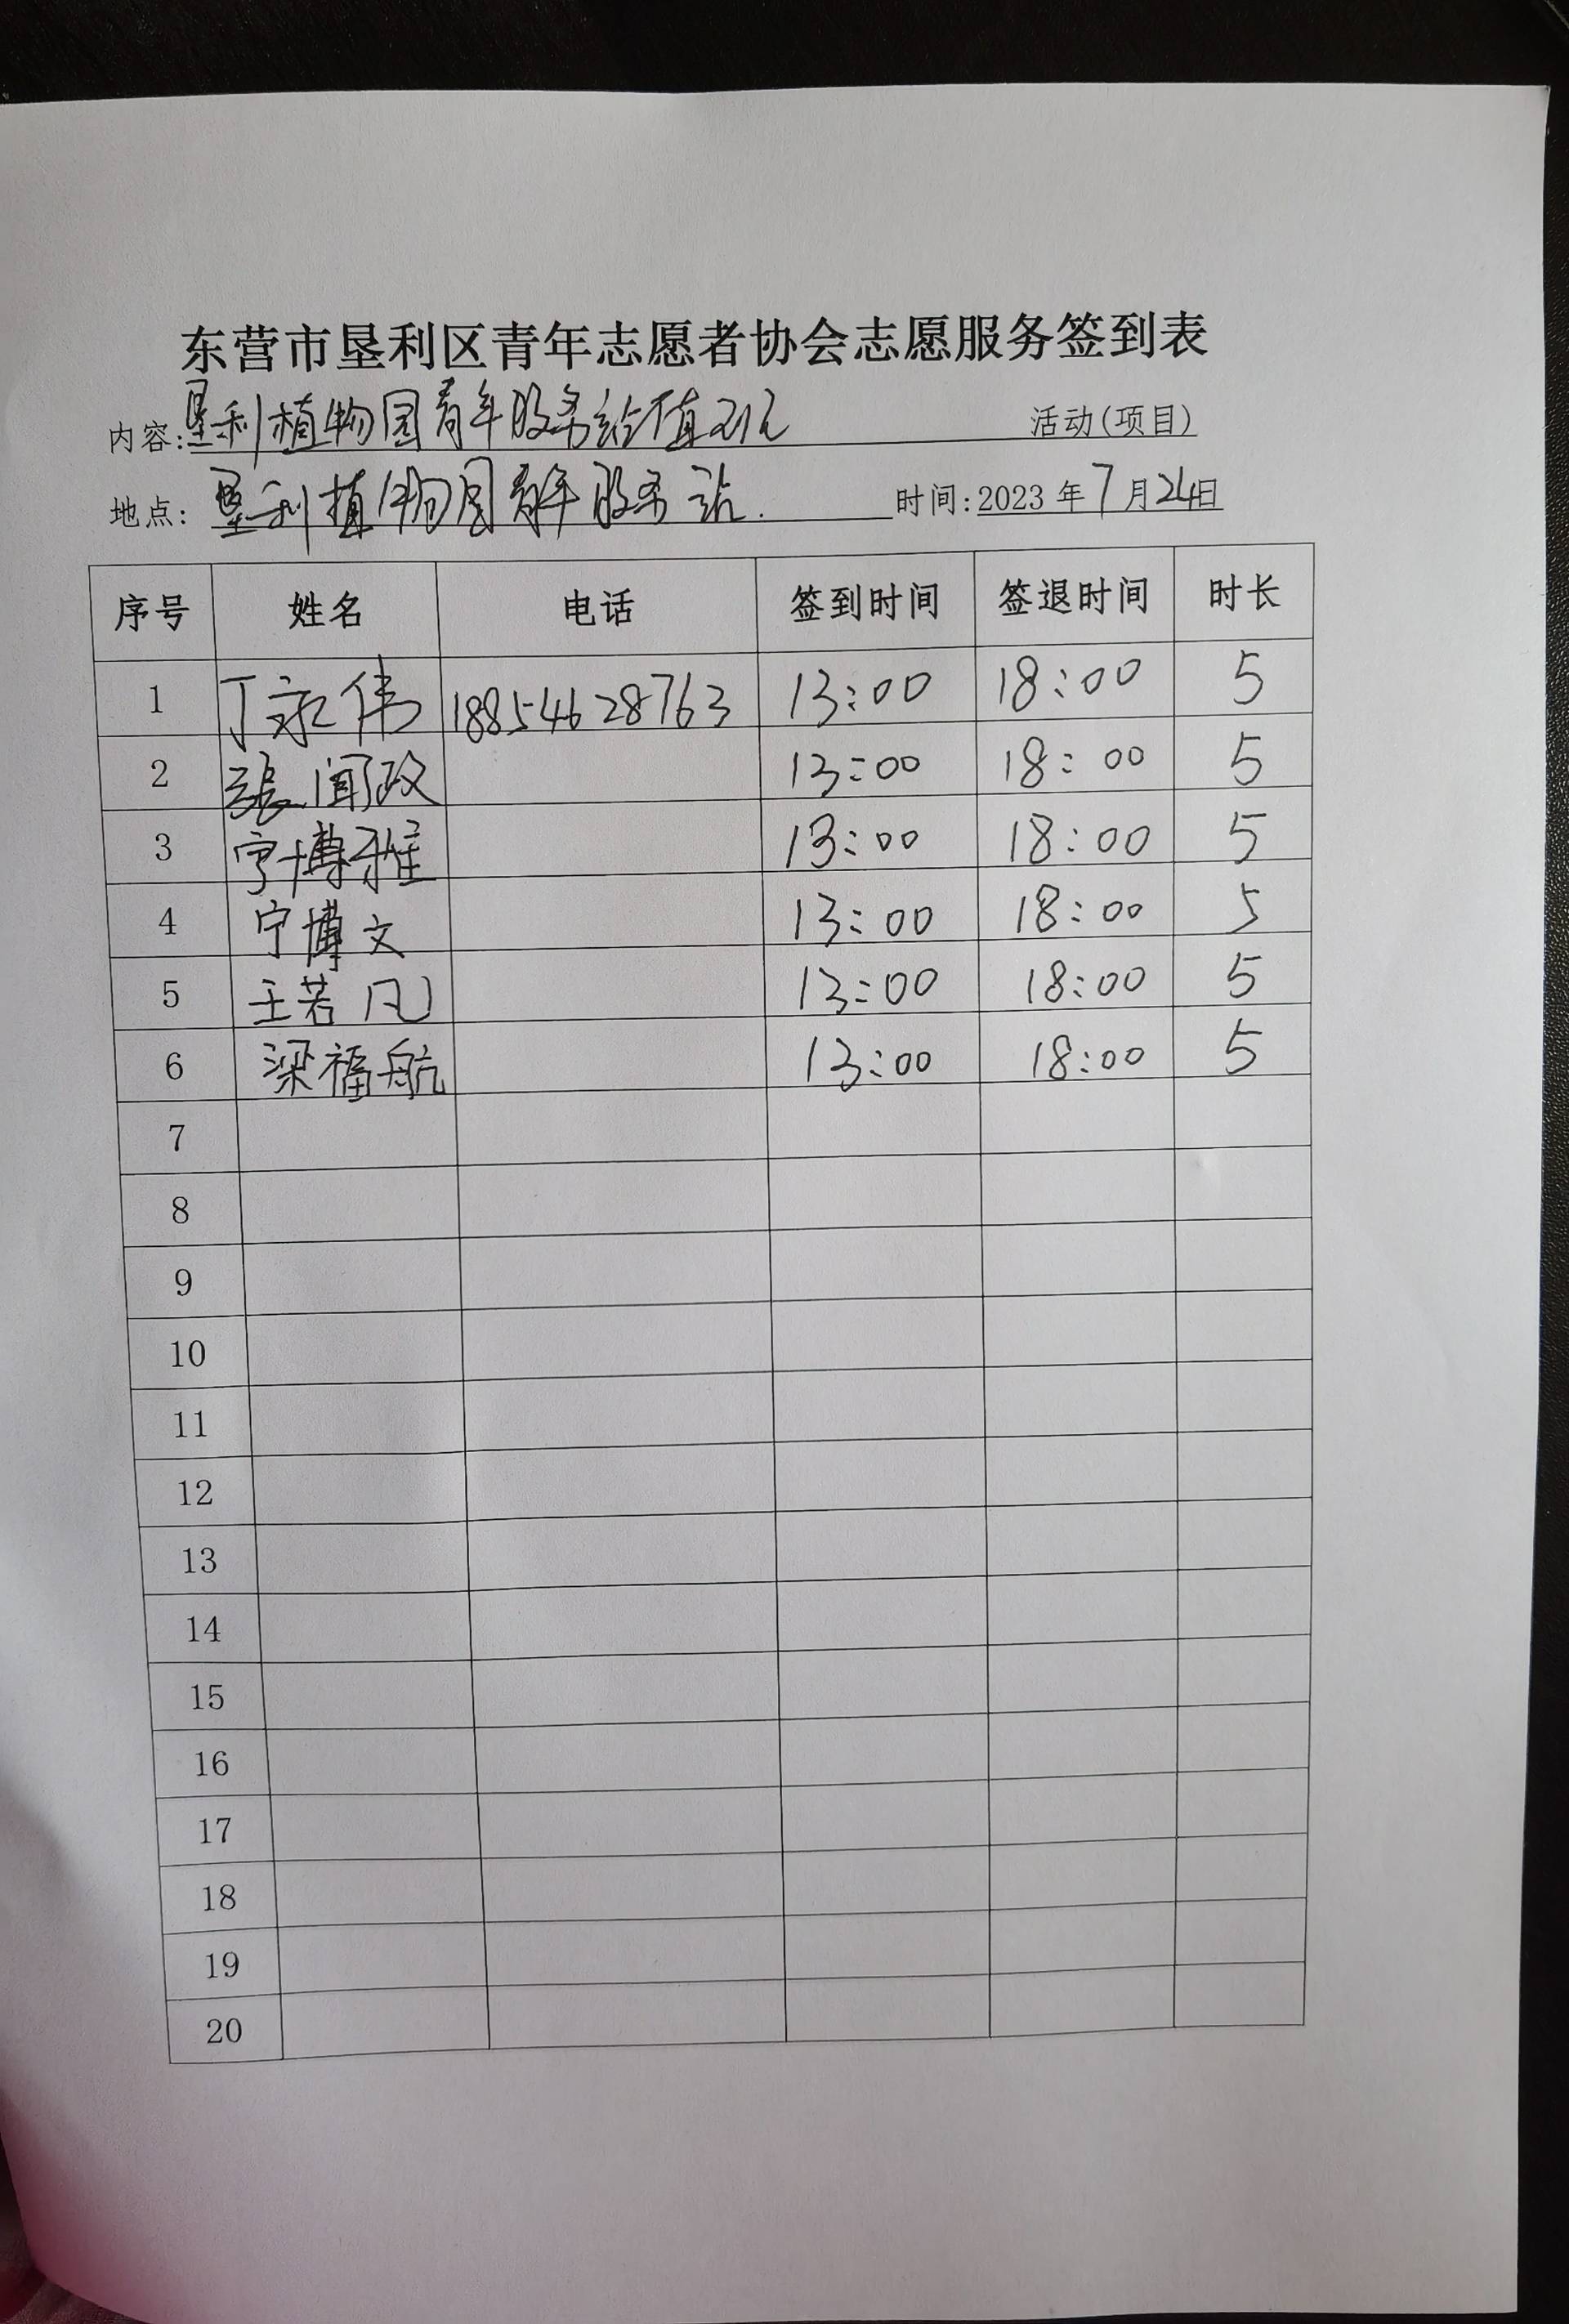 东营市垦利区青年志愿者协会志愿服务签到表
内容:垦利植物园青年服务站值班 活动(项目)
地点: 垦利植物园青年服务站. 时间:2023年7月24日
序号 姓名 电话 签到时间 签退时间 时长
1 丁永伟 18854628763 13:00 18:00 5
2 张闻政 13:00 18:00 5
3 宁博雅 13:00 18:00 5
4 宁博文 13:00 18:00 5
5 王若凡 13:00 18:00 5
6 梁福航 13:00 18:00 5
7
8
9
10
11
12
13
14
15
16
17
18
19
20